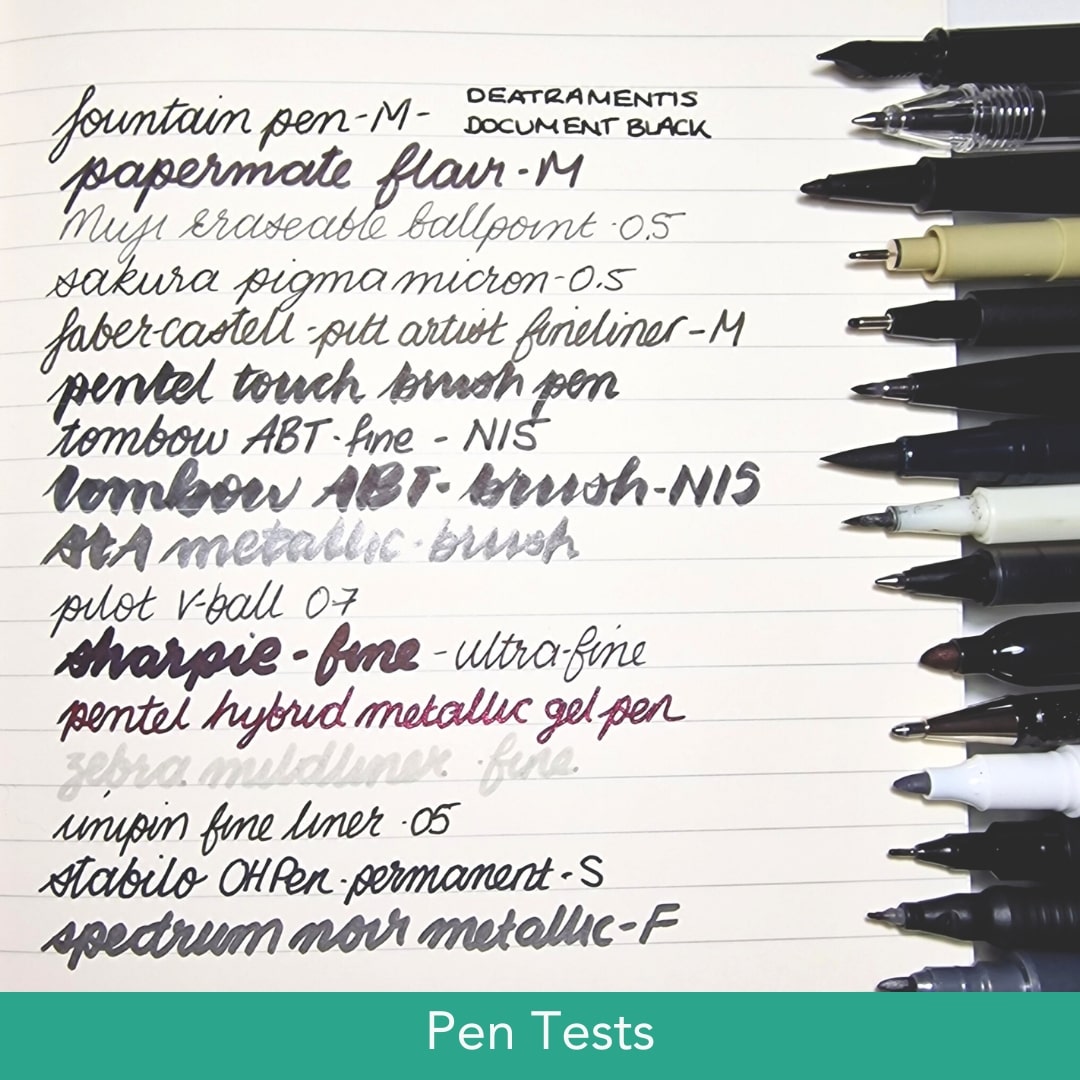 fountain pen-M- DEATRAMENTIS DOCUMENT BLACK
papermate flair-M
Muji eraseable ballpoint ·0.5
sakura pigma micron-0.5
faber-castell -pitt artist fineliner-M
pentel touch brush pen
tombow ABT·fine - N15
tombow ABT- brush-N15
StA metallic·brush
pilot V-ball 0.7
sharpie - fine - ultra-fine
pentel hybrid metallic gel pen
zebra mildliner ·fine
unipin fine liner ·05
stabilo OHPen·permanent-S
spectrum noir metallic-F
Pen Tests